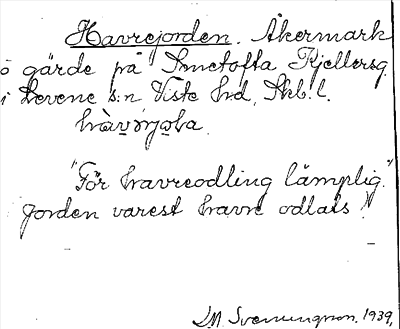 Havrejorden. Åkermark
å gärde på Smetofta Kjellersg.
i Levene s:n Viste hd, Skb. l.
"För havreodling lämplig."
Jorden varest havre odlats."
I.M. Svenungson. 1939,